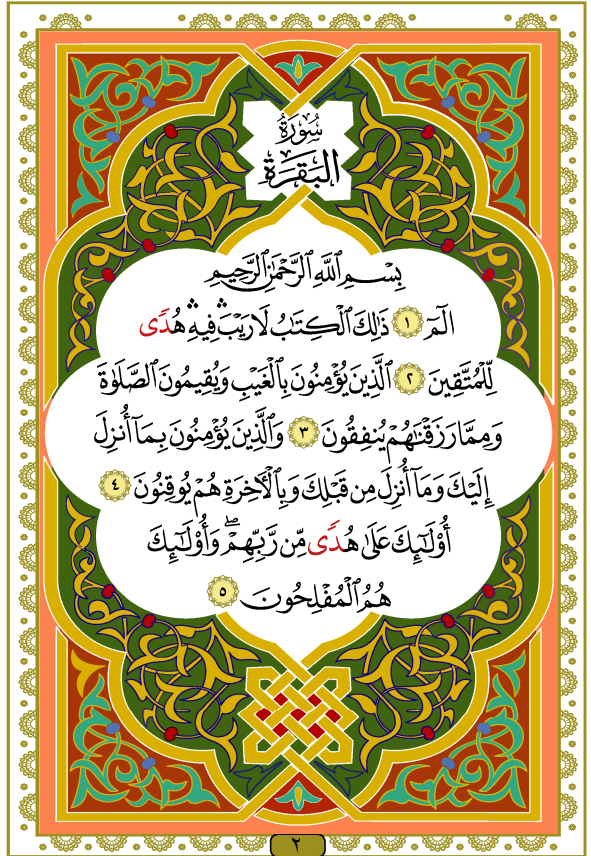 سُورَةُ
البَقَرَةِ
بِسْمِ ٱللَّهِ ٱلرَّحْمَٰنِ ٱلرَّحِيمِ
الٓمٓ ١ ذَٰلِكَ ٱلْكِتَٰبُ لَا رَيْبَ ۛ فِيهِ ۛ هُدًى
لِّلْمُتَّقِينَ ٢ ٱلَّذِينَ يُؤْمِنُونَ بِٱلْغَيْبِ وَيُقِيمُونَ ٱلصَّلَوٰةَ
وَمِمَّا رَزَقْنَٰهُمْ يُنفِقُونَ ٣ وَٱلَّذِينَ يُؤْمِنُونَ بِمَآ أُنزِلَ
إِلَيْكَ وَمَآ أُنزِلَ مِن قَبْلِكَ وَبِٱلْأَخِرَةِ هُمْ يُوقِنُونَ ٤
أُو۟لَٰٓئِكَ عَلَىٰ هُدًى مِّن رَّبِّهِمْ ۖ وَأُو۟لَٰٓئِكَ
هُمُ ٱلْمُفْلِحُونَ ٥
٢